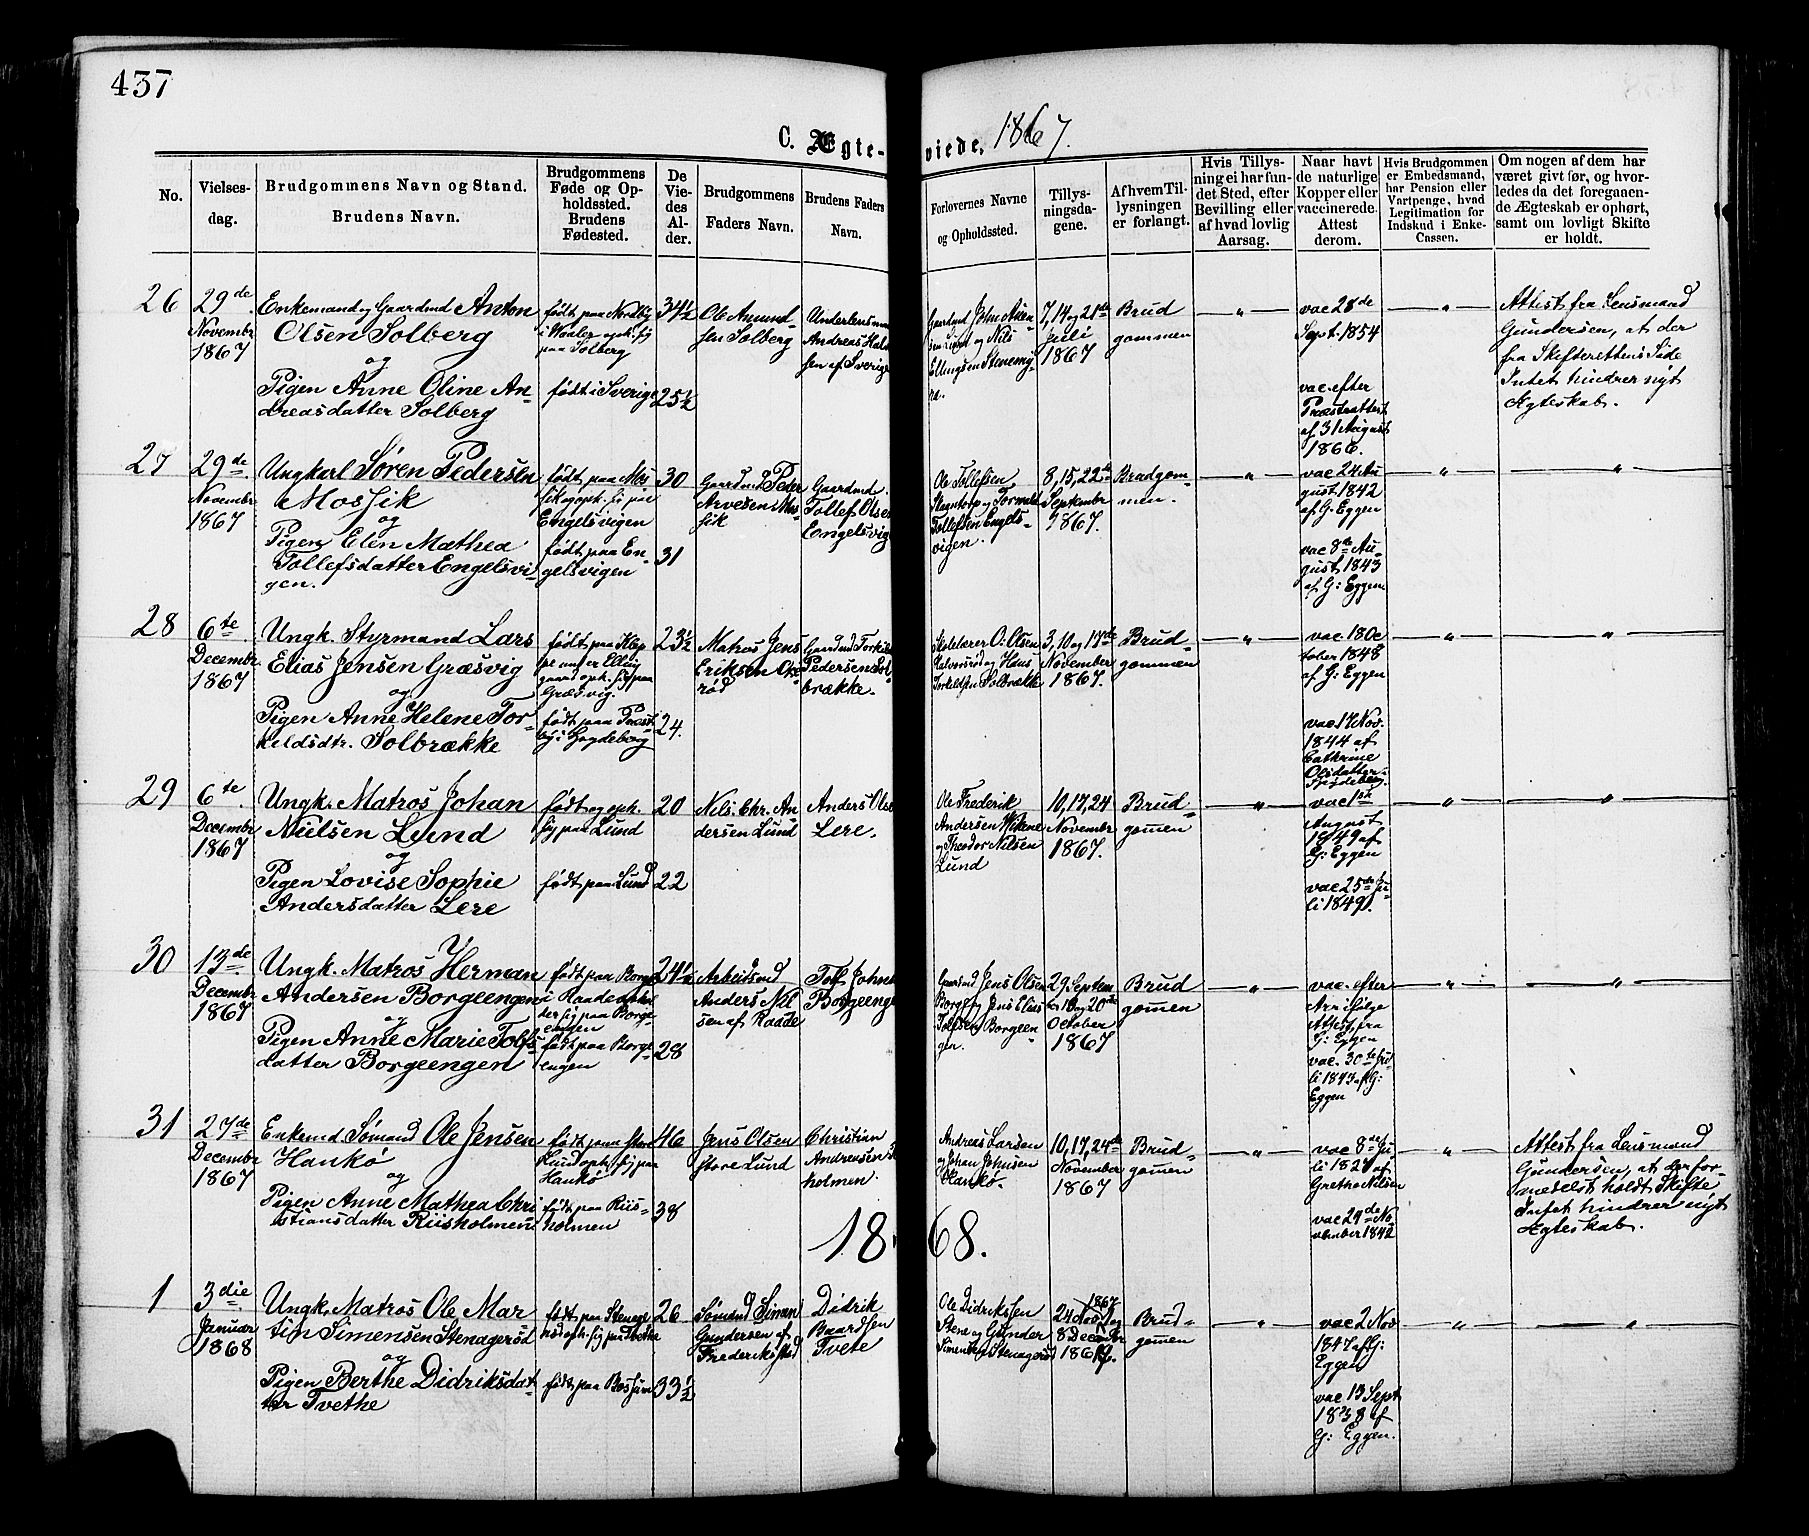 437
C. Ægteviede, 1867.
No.
Vielsesdag.
Brudgommens Navn og Stand.
Brudens Navn.
Brudgommens Føde og Opholdssted. Brudens Fødested.
De Viedes Alder.
Brudgommens Faders Navn.
Brudens Faders Navn.
Forlovernes Navne og Opholdssted.
Tillysningsdagene.
Af hvem Tillysningen er forlangt.
Hvis Tillysning ei har fundet Sted, efter Bevilling eller af hvad lovlig Aarsag.
Naar havt de naturlige Kopper eller vaccinerede. Attest derom.
Hvis Brudgommen er Embedsmand, har Pension eller Vartpenge, hvad Legitimation for Indskud i Enke-Cassen.
Om nogen af dem har været givt før, og hvorledes da det foregaaende Ægteskab er ophørt, samt om lovligt Skifte er holdt.
26
29de
Novembr
1867
Enkemand og Gaardmd Anton
Olsen Solberg
og
Pigen Anne Oline An-
dreasdatter Solberg
født paa Nordby
i Vaaler oph. sig
paa Solberg
født i Sverige
34½
25½
Ole Amund-
sen Solberg
Underlensmd
Andreas
sen af Sverige
Gaardmd John
sen Lund og Nils
Ellingsen Stenemy-
ra.
7, 14 og 21de
Juli
1867
Brud
gommen
"
vac 28de
Sept. 1854
vac. efter
Præsteattest
af 31 August
1866.
"
Attest fra Lensmand
Gundersen, at der
fra Skifterettens Side
Intet hindrer nyt
Ægteskab.
27
29de
Novembr
1867
Ungkarl Søren Pedersen
Mossik
og
Pigen Elen Mathea
Tollefsdatter Engelsvi-
gen.
født paa Mos
sik og oph. sig paa
Engelsvigen
født paa En-
gelsvigen
30
31
Gaardmd Peder
Arvesen Mos-
sik
Gaardmd.
Tollef Olsen
Engelsvig
Ole Tollefsen
Slagntorp og Tormod
Tollefsen Engels-
vigen.
8, 15, 22de
Septembr
1867.
Brudgom-
men.
"
vac 24 Au
gust 1842
af G. Eggen
vac 8de Au-
gust 1843
af G: Eggen
"
"
28
6te
Decembr.
1867
Ungk. Styrmand Lars
Elias Jensen Græsvig
og
Pigen Anne Helene Tor-
keldsdtr. Solbrække
født paa Klep
pe under Elling
gaard oph. sig paa
Græsvig.
født paa Præst
by i Ingdeborg
23½
24.
Matros Jens
Eriksen
rød
Gaardmd Torkild
Pedersen Sol-
brække.
Skolelærer O. Olsen
Halvorsrød og Hans
Torkildsen Solbrække
3, 10 og 17de
November
1867.
Brud-
gommen
"
vac. 18 Oc
tober 1848
af G. Eggen
vac 17 Nov.
1844 af
Cathrine
Olsdatter
"
"
29
6te
Decembr
1867
Ungk. Matros Johan
Nielsen Lund
og
Pigen Lovise Sophie
Andersdatter Lere
født og oph.
sig paa Lund
født paa Lund
20
22
Nils Chr. An
dersen Lund
Anders Olsen
Lere.
Ole Frederik
Andersen Vikene
og Theodor Nilsen
Lund
10, 17, 24
Novembr
1867.
Brud
gomen
"
vac 1st
August
1849 af
G: Eggen
vac 25de Ju
li 1849.
"
"
30
13de
Decembr
1867
Ungk. Matros Herman
Andersen Borgeengen
og
Pigen Anne Marie Tolfs
datter Borgeengen
født paa Borge
i Raade ophol
der sig paa Borge-
engen
født paa Borge-
engen
24½
28
Arbeidsmd
Anders Nil
sen af Raade
Tolf Johns
Borgeengen
Gaardmd Jens Olsen
Borge og Jens Elias
Tolfsen Borgeen
gen.
29 Septem
br 13 og 20de
October
1867
Brud
gomen
"
vac. efter
Arr ifølge
Attest fra
G. Eggen
vac. 30te Ju-
li 1843 af G:
Eggen
"
"
31
27de
Decembr
1867
Enkemd Sømand Ole Jensen
Hankø
og
Pigen Anne Mathea Chri
stiansdatter Riisholmen
født paa Store
Lund oph. sig paa
Hankø
født paa Riis-
holmen
46
38
Jens Olsen
store Lund
Christian
Andreasen
holmen.
Andreas Larsen
og Johan Johnsen
Hankø.
10, 17, 24de
November
1867
Brud-
gomen
"
vac 8de Ju
li 1827 af
Grethe Nilsen
vac 29de No
vember 1842
"
Attest fra Lensmand
Gundersen, at der for-
medelst holdt Skifte
Intet hindrer nyt
Ægteskab.
1868.
1
3die
Januar
1868
Ungk. Matros Ole Mar
tin Simensen Stenagerød
og
Pigen Berthe Didriksdat-
ter Tvethe
født paa Stenage
rød oph. sig paa Tvethe
født paa Bossum
26
33½
Sømand Siman
Gundersen af
Frederikstad
Didrik
Baardsen
Tvete
Ole Didriksen
Stene og Gunder
Simensen Stenagerød
24 Nov og
8 December
1867.
Brud-
gomen
"
vac 2 Nov
1847 af G:
Eggen
vac 13 Sept
1838 af
G: Eggen.
"
"